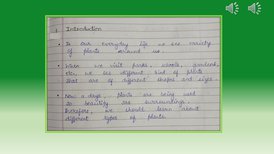 1. Introduction
• In our everyday life we see variety
of plants around us.
• When we visit parks, schools, gardens,
etc, we see different kind of plants
that are of different shapes and sizes.
• Now a days, plants are being used
to beautify our surroundings.
Therefore, we should learn about
different types of plants.